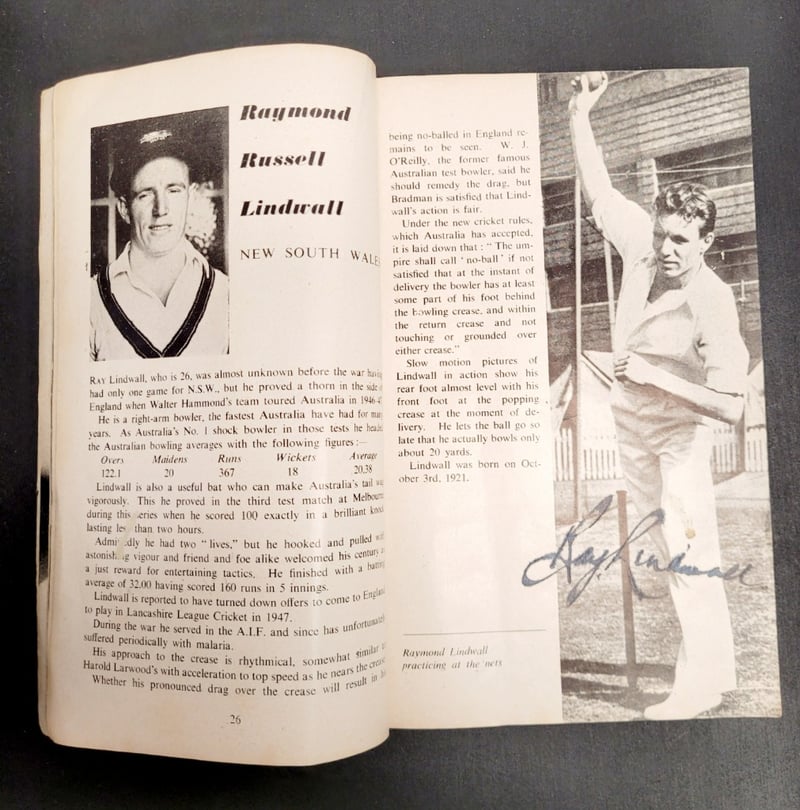 Raymond
Russell
Lindwall
NEW SOUTH WALES
RAY Lindwall, who is 26, was almost unknown before the war having
had only one game for N.S.W., but he proved a thorn in the side of
England when Walter Hammond's team toured Australia in 1946-47
He is a right-arm bowler, the fastest Australia have had for many
years. As Australia's No. 1 shock bowler in those tests he headed
the Australian bowling averages with the following figures :—
Overs Maidens Runs Wickets Average
122.1 20 367 18 20.38
Lindwall is also a useful bat who can make Australia's tail wag
vigorously. This he proved in the third test match at Melbourne
during this series when he scored 100 exactly in a brilliant knock
lasting less than two hours.
Admittedly he had two "lives," but he hooked and pulled with
astonishing vigour and friend and foe alike welcomed his century as
a just reward for entertaining tactics. He finished with a batting
average of 32.00 having scored 160 runs in 5 innings.
Lindwall is reported to have turned down offers to come to England
to play in Lancashire League Cricket in 1947.
During the war he served in the A.I.F. and since has unfortunately
suffered periodically with malaria.
His approach to the crease is rhythmical, somewhat similar to
Harold Larwood's with acceleration to top speed as he nears the crease
Whether his pronounced drag over the crease will result in his
26
being no-balled in England re-
mains to be seen. W. J.
O'Reilly, the former famous
Australian test bowler, said he
should remedy the drag, but
Bradman is satisfied that Lind-
wall's action is fair.
Under the new cricket rules,
which Australia has accepted,
it is laid down that : " The um-
pire shall call ' no-ball ' if not
satisfied that at the instant of
delivery the bowler has at least
some part of his foot behind
the bowling crease, and within
the return crease and not
touching or grounded over
either crease."
Slow motion pictures of
Lindwall in action show his
rear foot almost level with his
front foot at the popping
crease at the moment of de-
livery. He lets the ball go so
late that he actually bowls only
about 20 yards.
Lindwall was born on Oct-
ober 3rd, 1921.
Ray Lindwall
Raymond Lindwall
practicing at the nets